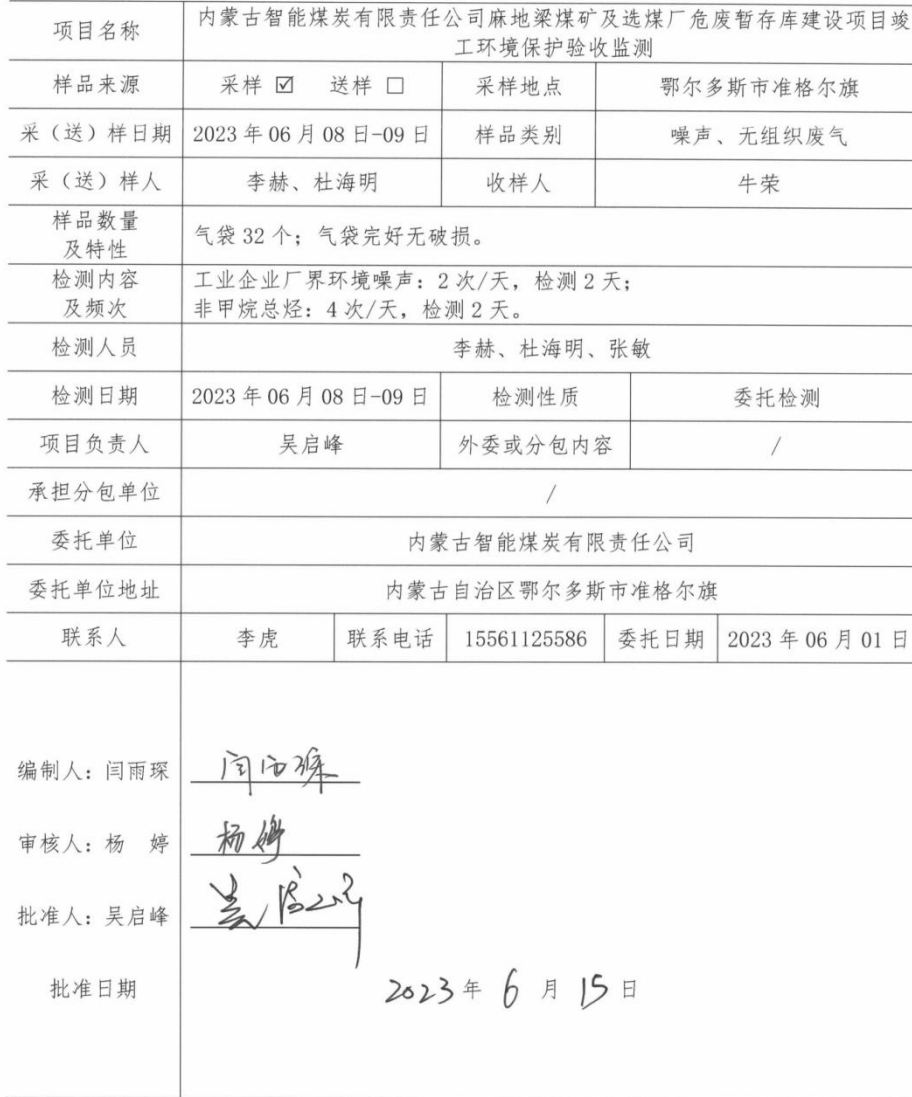 项目名称 内蒙古智能煤炭有限责任公司麻地梁煤矿及选煤厂危废暂存库建设项目竣
工环境保护验收监测
样品来源 采样 ☑ 送样 □ 采样地点 鄂尔多斯市准格尔旗
采（送）样日期 2023 年 06 月 08 日-09 日 样品类别 噪声、无组织废气
采（送）样人 李赫、杜海明 收样人 牛荣
样品数量
及特性 气袋 32 个；气袋完好无破损。
检测内容 工业企业厂界环境噪声：2 次/天，检测 2 天；
及频次 非甲烷总烃：4 次/天，检测 2 天。
检测人员 李赫、杜海明、张敏
检测日期 2023 年 06 月 08 日-09 日 检测性质 委托检测
项目负责人 吴启峰 外委或分包内容 /
承担分包单位 /
委托单位 内蒙古智能煤炭有限责任公司
委托单位地址 内蒙古自治区鄂尔多斯市准格尔旗
联系人 李虎 联系电话 15561125586 委托日期 2023 年 06 月 01 日
编制人：闫雨琛 闫雨琛
审核人：杨 婷 杨婷
批准人：吴启峰 吴启峰
批准日期 2023 年 6 月 15 日